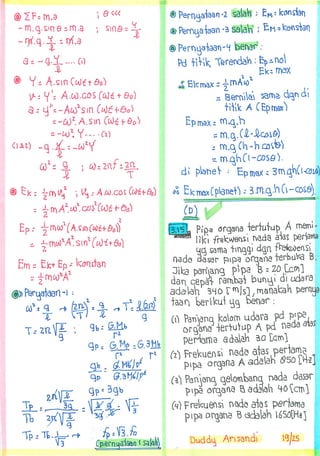 ΣF = m.a ; θ <<<
- m.g. sin θ = m.a ; sin θ = y/l
- m.g. y/l = m.a
a = -g. y/l .... (1)
Y = A. sin (ωt + θo)
v = y' = A.ω. cos (ωt + θo)
a = y'' = -Aω² sin (ωt + θo)
= -ω². A. sin (ωt + θo)
= -ω². Y .... (2)
-g. y/l = -ω²Y
ω² = g/l ; ω = 2πf = 2π/T
Ek = ½ m vy² ; vy = A.ω. cos (ωt + θo)
= ½ m A².ω². cos² (ωt + θo)
Ep = ½ mω² (A. sin (ωt + θo))²
= ½ mω²A². sin² (ωt + θo)
Em = Ek + Ep = konstan
= ½ mω²A²
Pernyataan-1 :
ω² = g/l → (2π/T)² = g/l → T² = l(2π)²/g
T = 2π √(l/g) ; gb = G.Mb/r²
gp = G.Mp/r² = G.3Mb/r²
gb/gp = G.Mb/r² / G.3Mb/r²
gp = 3gb
Tp/Tb = 2π √(l/3g) / 2π √(l/g) = √(l/3g . g/l) = √(1/3)
Tp = Tb. 1/√3 → fp = √3. fb
(pernyataan 1 salah)
Pernyataan-2 salah : EM = konstan
Pernyataan-3 salah : EM = konstan
Pernyataan-4 benar :
Pd titik Terendah : Ep = nol
Ek = max
Ekmax = ½ mω²A²
= Bernilai sama dgn di
titik A (Ep max)
Epmax = m.g.h
= m.g. (l - l.cos θ)
= m.g (h - h cos θ)
= m.gh (1 - cos θ).
di planet : Epmax = 3m.gh(1-cos θ)
Ekmax (planet) = 3.m.g.h (1 - cos θ)
(D)
3.15 Pipa organa tertutup A memi-
liki frekwensi nada atas pertama
yg sama tinggi dgn frekwensi
nada dasar pipa organa terbuka B.
Jika panjang pipa B = 20 [cm]
dan cepat rambat bunyi di udara
adalah 340 [m/s], manakah pernya
taan berikut yg benar :
(1) Panjang kolom udara pd pipa
organa tertutup A pd nada atas
pertama adalah 30 [cm]
(2) Frekuensi nada atas pertama
pipa organa A adalah 850 [Hz]
(3) Panjang gelombang nada dasar
pipa organa B adalah 40 [cm]
(4) Frekuensi nada atas pertama
pipa organa B adalah 1650 [Hz]
Duddy Arisandi 19/25